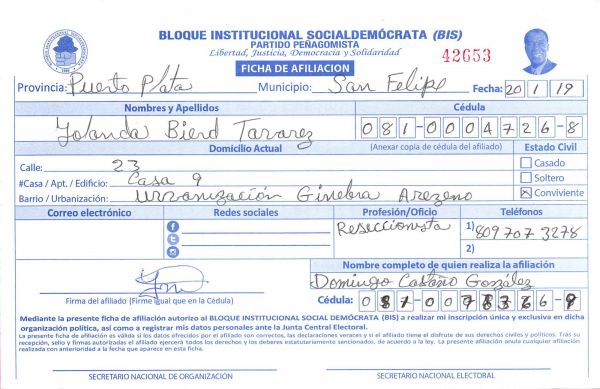 BLOQUE INSTITUCIONAL SOCIALDEMÓCRATA (BIS)
PARTIDO PEÑAGOMISTA
Libertad, Justicia, Democracia y Solidaridad
42653
FICHA DE AFILIACION
Provincia: Puerto Plata Municipio: San Felipe Fecha: 20 1 19
Nombres y Apellidos Cédula
Yolanda Bierd Tavarez 081-0004726-8
Domicilio Actual (Anexar copia de cédula del afiliado) Estado Civil
Calle: 23 Casado
#Casa / Apt. / Edificio: Casa 9 Soltero
Barrio / Urbanización: Urbanización Ginebra Arezeno X Conviviente
Correo electrónico Redes sociales Profesión/Oficio Teléfonos
Reseccionista 1) 809 707 3278
2)
Nombre completo de quien realiza la afiliación
Domingo Castaño González
Firma del afiliado (Firme igual que en la Cédula) Cédula:
Mediante la presente ficha de afiliación autorizo al BLOQUE INSTITUCIONAL SOCIAL DEMÓCRATA (BIS) a realizar mi inscripción única y exclusiva en dicha
organización política, así como a registrar mis datos personales ante la Junta Central Electoral.
La presente ficha de afiliación es válida si los datos ofrecidos por el afiliado son correctos, las declaraciones veraces y si el afiliado tiene el disfrute de sus derechos civiles y políticos. Tras su
recepción, sello y firmas autorizadas el afiliado ejercerá todos los derechos y los deberes estatutariamente sancionados, de acuerdo a la ley. La presente afiliación anula cualquier afiliación
realizada con anterioridad a la fecha que aparece en esta ficha.
SECRETARIO NACIONAL DE ORGANIZACIÓN SECRETARIO NACIONAL ELECTORAL